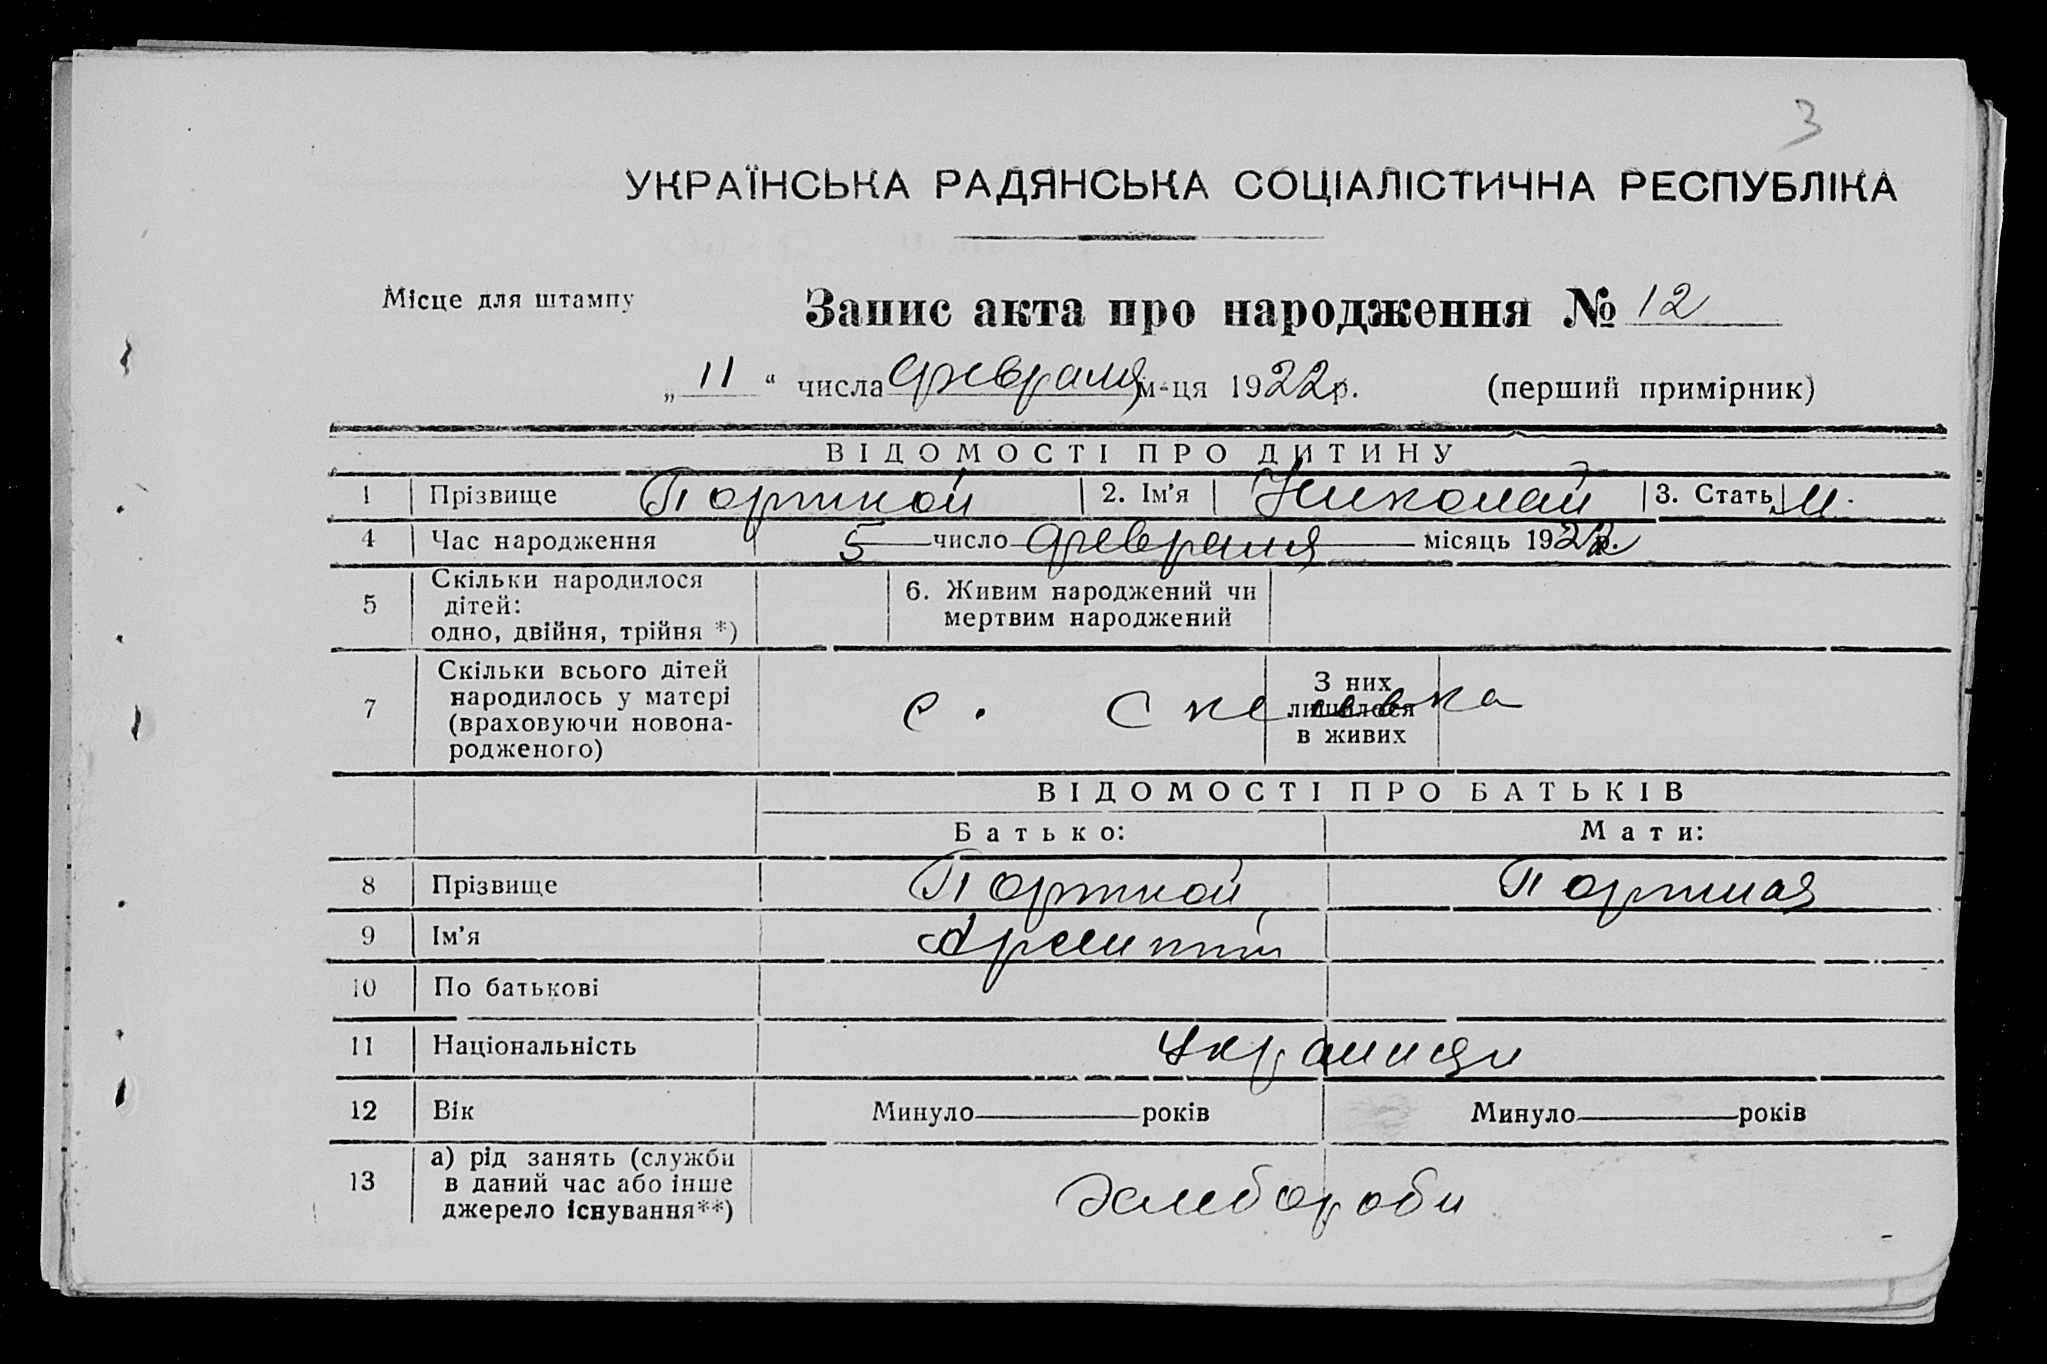 3
УКРАЇНСЬКА РАДЯНСЬКА СОЦІАЛІСТИЧНА РЕСПУБЛІКА
Місце для штампу
Запис акта про народження № 12
„ 11 “ числа февраля м-ця 1922 р. (перший примірник)
ВІДОМОСТІ ПРО ДИТИНУ
1 Прізвище Портной 2. Ім’я Николай 3. Стать М.
4 Час народження 5 число февраля місяць 1922 р.
5 Скільки народилося дітей: одно, двійня, трійня *) 6. Живим народжений чи мертвим народжений
7 Скільки всього дітей народилось у матері (враховуючи новонародженого) З них лишилося в живих
с. Скелевка
ВІДОМОСТІ ПРО БАТЬКІВ
Батько: Мати:
8 Прізвище Портной Портная
9 Ім’я
10 По батькові
11 Національність українци
12 Вік Минуло років Минуло років
13 а) рід занять (служби в даний час або інше джерело існування**) хлебороби